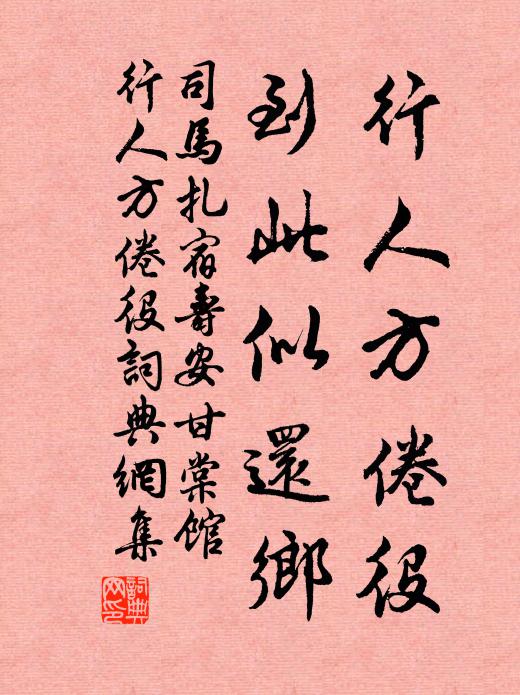 行人方倦役
到此似還鄉
司馬扎宿壽安甘棠館
行人方倦役詞典網集
詞典網印